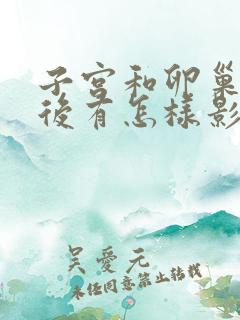 子宮和卵巢
後有怎樣影
吳愛元
未經同意禁止轉載